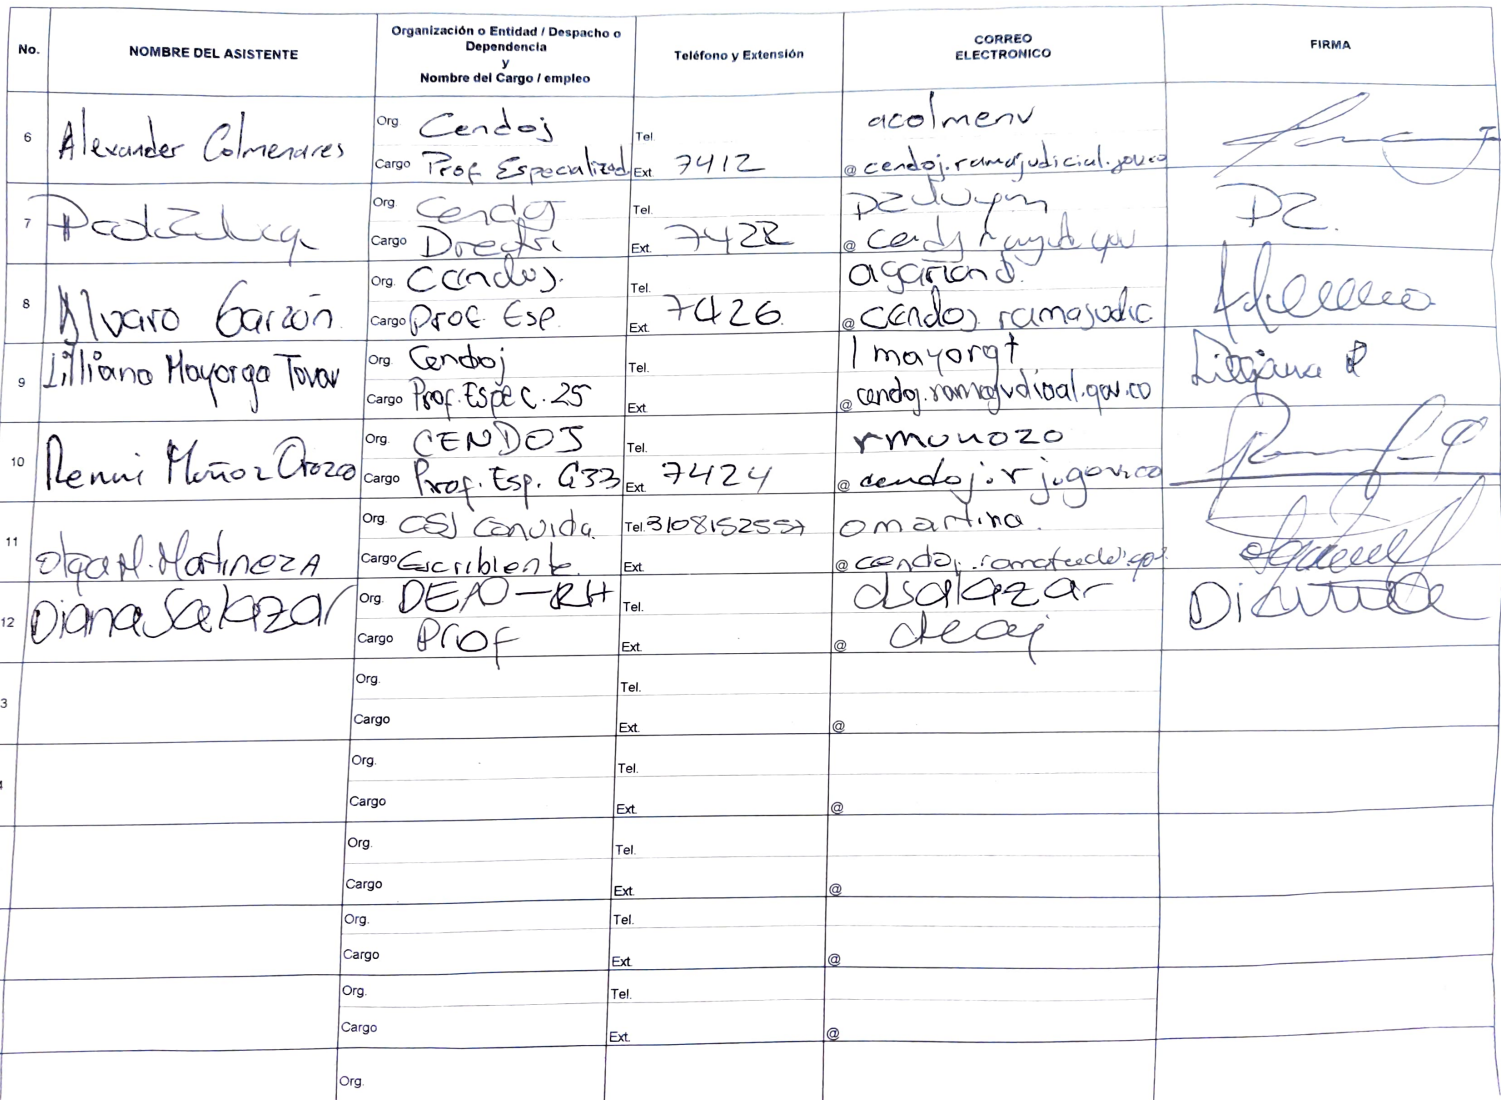 No.
NOMBRE DEL ASISTENTE
Organización o Entidad / Despacho o
Dependencia
y
Nombre del Cargo / empleo
Teléfono y Extensión
CORREO
ELECTRONICO
FIRMA
6 Alexander Colmenares
Org. Cendoj
Cargo Prof Especializad
Tel
Ext. 7412
acolmenv
@ cendoj.ramajudicial.gov.co
7
Org. Cendoj
Cargo
Tel.
Ext. 7422
@
DZ.
8 Alvaro Garzón.
Org. Cendoj.
Cargo Prof. Esp.
Tel.
Ext. 7426
@ cendoj ramajudic
9 Lilliana Mayorga Tovar
Org. Cendoj
Cargo Prof. Espec. 25
Tel.
Ext.
lmayorgt
@ cendoj.ramajudicial.gov.co
Liliana
10 Renni Muñoz Orozco
Org. CENDOJ
Cargo Prof. Esp. G33
Tel.
Ext. 7424
rmunozo
@ cendoj.rj.gov.co
11 Olga M. Martinez A
Org. CSJ Convida.
Cargo Escribiente
Tel. 3108152557
Ext.
omartina.
@ cendoj.
12 Diana Salazar
Org. DEAJ-RH
Cargo Prof
Tel.
Ext.
dsalazar
@ deaj
3
Org.
Cargo
Tel.
Ext.
@
Org.
Cargo
Tel.
Ext.
@
Org.
Cargo
Tel.
Ext.
@
Org.
Cargo
Tel.
Ext.
@
Org.
Cargo
Tel.
Ext.
@
Org.